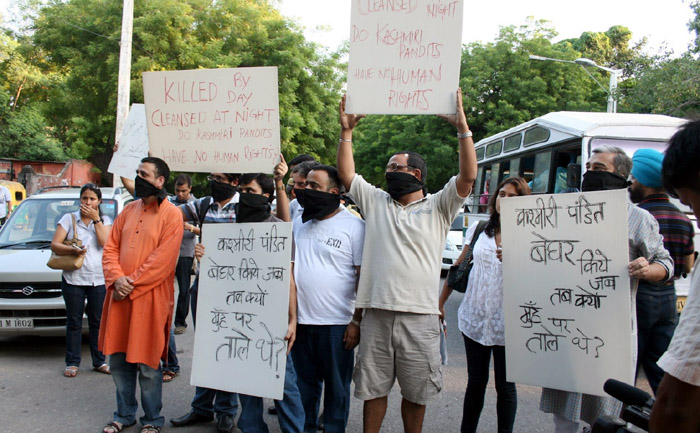 CLEANSED NIGHT
DO KASHMIRI
PANDITS
HAVE NO HUMAN
RIGHTS
KILLED BY
DAY
CLEANSED AT NIGHT
DO KASHMIRI PANDITS
HAVE NO HUMAN RIGHTS
कश्मीरी पंडित
बेघर किये जब
तब क्यों
मुँह पर
ताले थे?
कश्मीरी पंडित
बेघर
किये
जब
तब क्यों
मुँह पर
ताले थे?
EXIT
M 1602